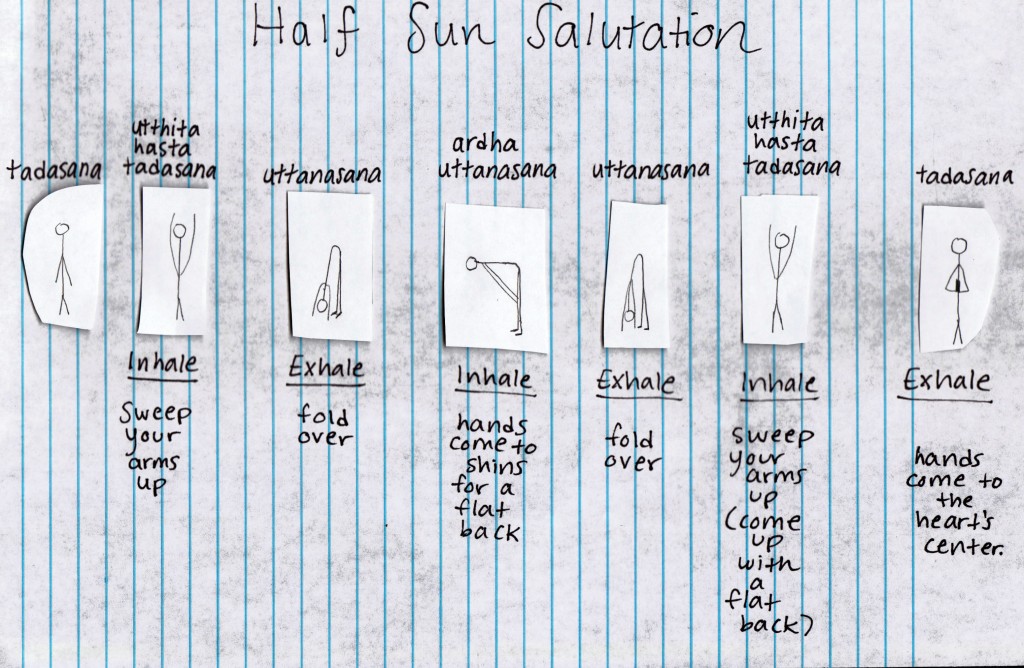 Half Sun Salutation
tadasana
utthita
hasta
tadasana
Inhale
Sweep
your
arms
up
uttanasana
Exhale
fold
over
ardha
uttanasana
Inhale
hands
come to
shins
for a
flat
back
uttanasana
Exhale
fold
over
utthita
hasta
tadasana
Inhale
sweep
your
arms
up
(come
up
with
a
flat
back)
tadasana
Exhale
hands
come to
the
heart's
center.